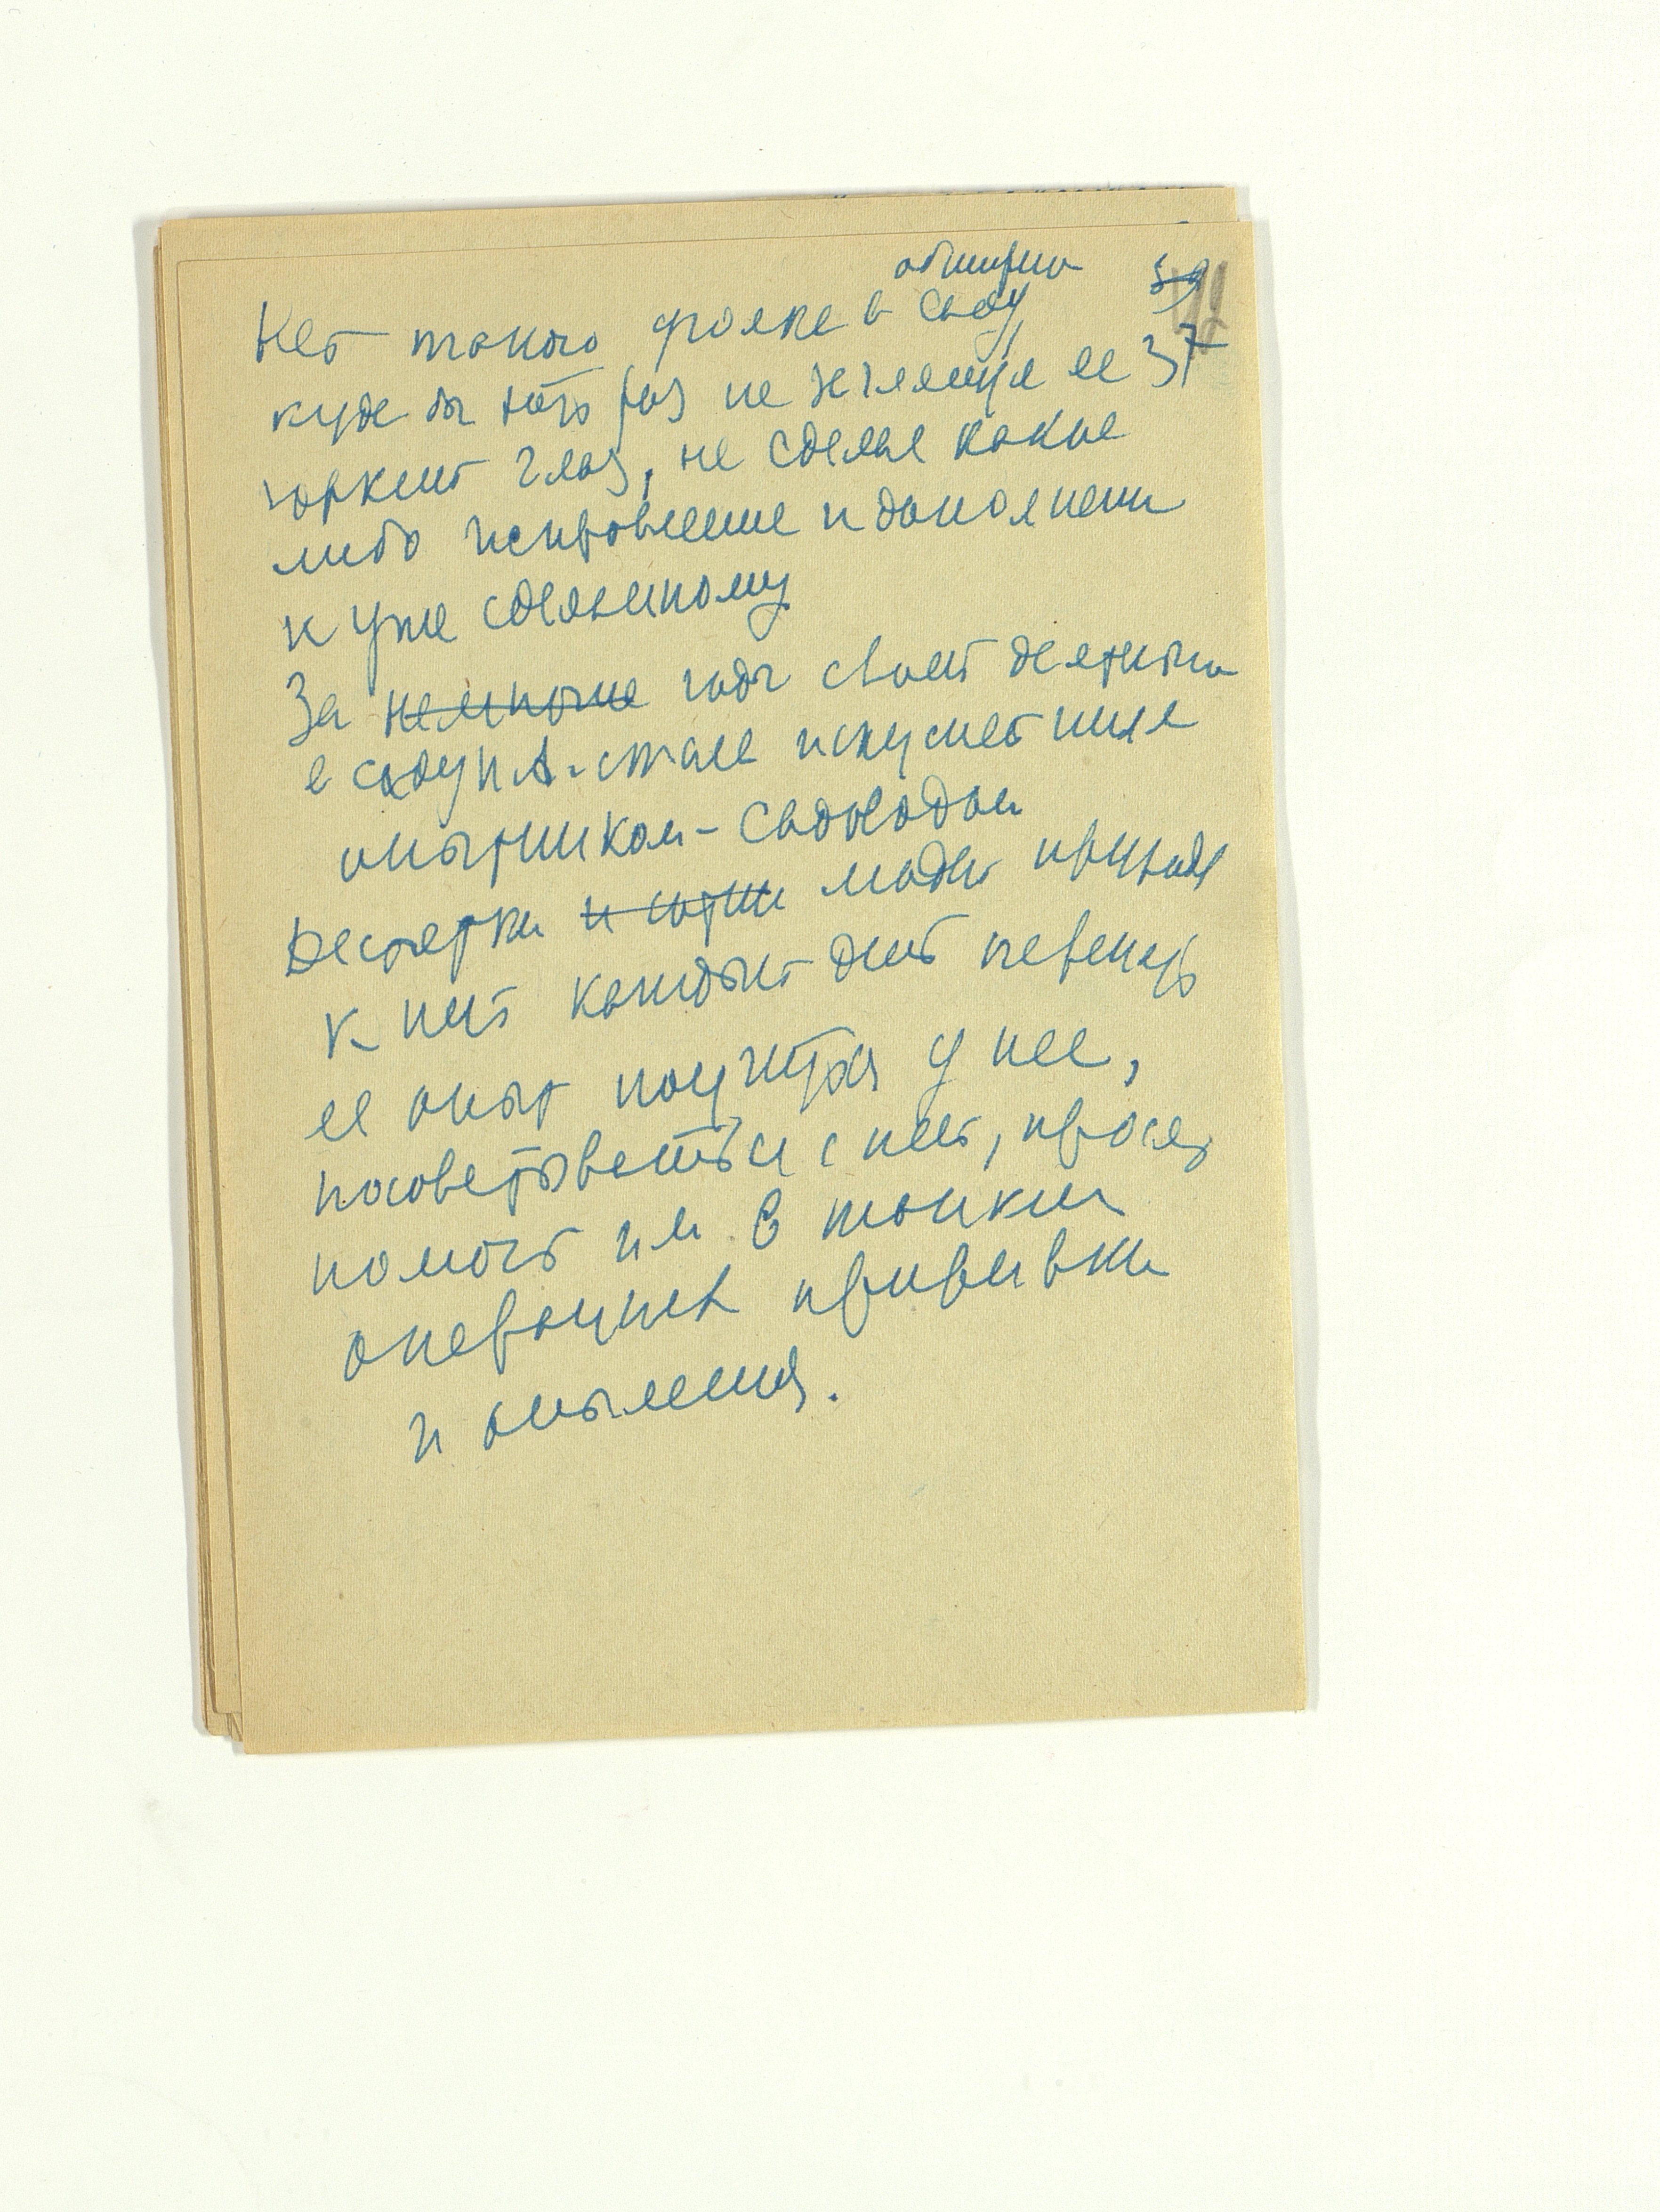 обширно
Нет такого уголка в саду 39
куда бы 100 раз не заглянул ее 37
зоркий глаз, не сделав какие
либо исправление и дополнени
к уже сделанному
За немногие годы своей деятельно
в саду стала искуснейшим
опытником-садоводом
Десятки и сотни людей приходя
к ней каждый день перенять
ее опыт поучится у нее,
посоветоваться с ней, прося
помочь им в тонких
операциях прививки
и опыления.